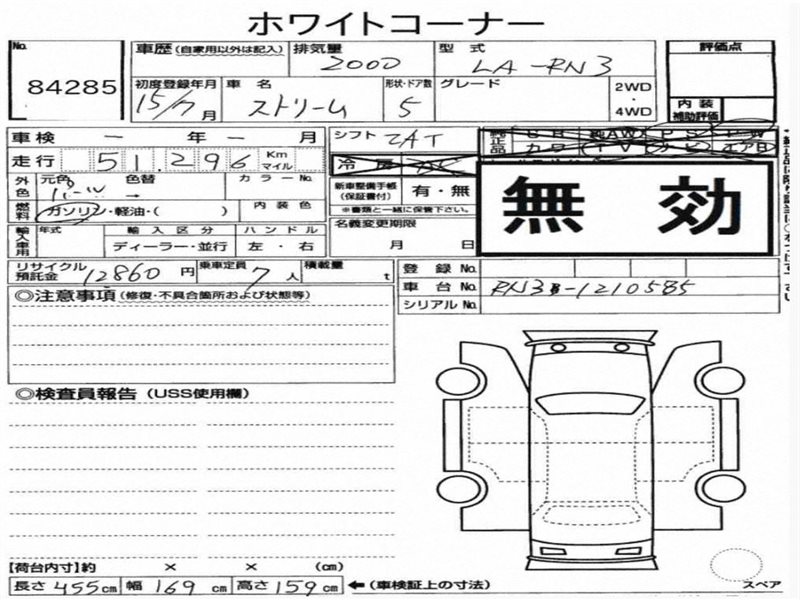 ホワイトコーナー
No. 84285
車歴 (自家用以外は記入) 排気量 2000 型式 LA-RN3 評価点
初度登録年月 15/7月 車名 ストリーム 形状・ドア数 5 グレード 2WD・4WD 内装補助評価
車検 ー 年 ー 月 シフト
走行 51,296 Km マイル 冷房
外色 元色 パール 色替 → カラーNo. 新車整備手帳(保証書付) 有・無
燃料 ガソリン・軽油・( ) 内装色 ※書類と一緒に保管下さい。
無効
輸入車用 年式 輸入区分 ディーラー・並行 ハンドル 左・右 名義変更期限 月 日
リサイクル預託金 12860円 乗車定員 7人 積載量 t 登録No.
車台No. RN3-1210585
シリアルNo.
◎注意事項 (修復・不具合箇所および状態等)
◎検査員報告 (USS使用欄)
【荷台内寸】約 × × (cm)
長さ 455cm 幅 169cm 高さ 159cm ←(車検証上の寸法)
スペア